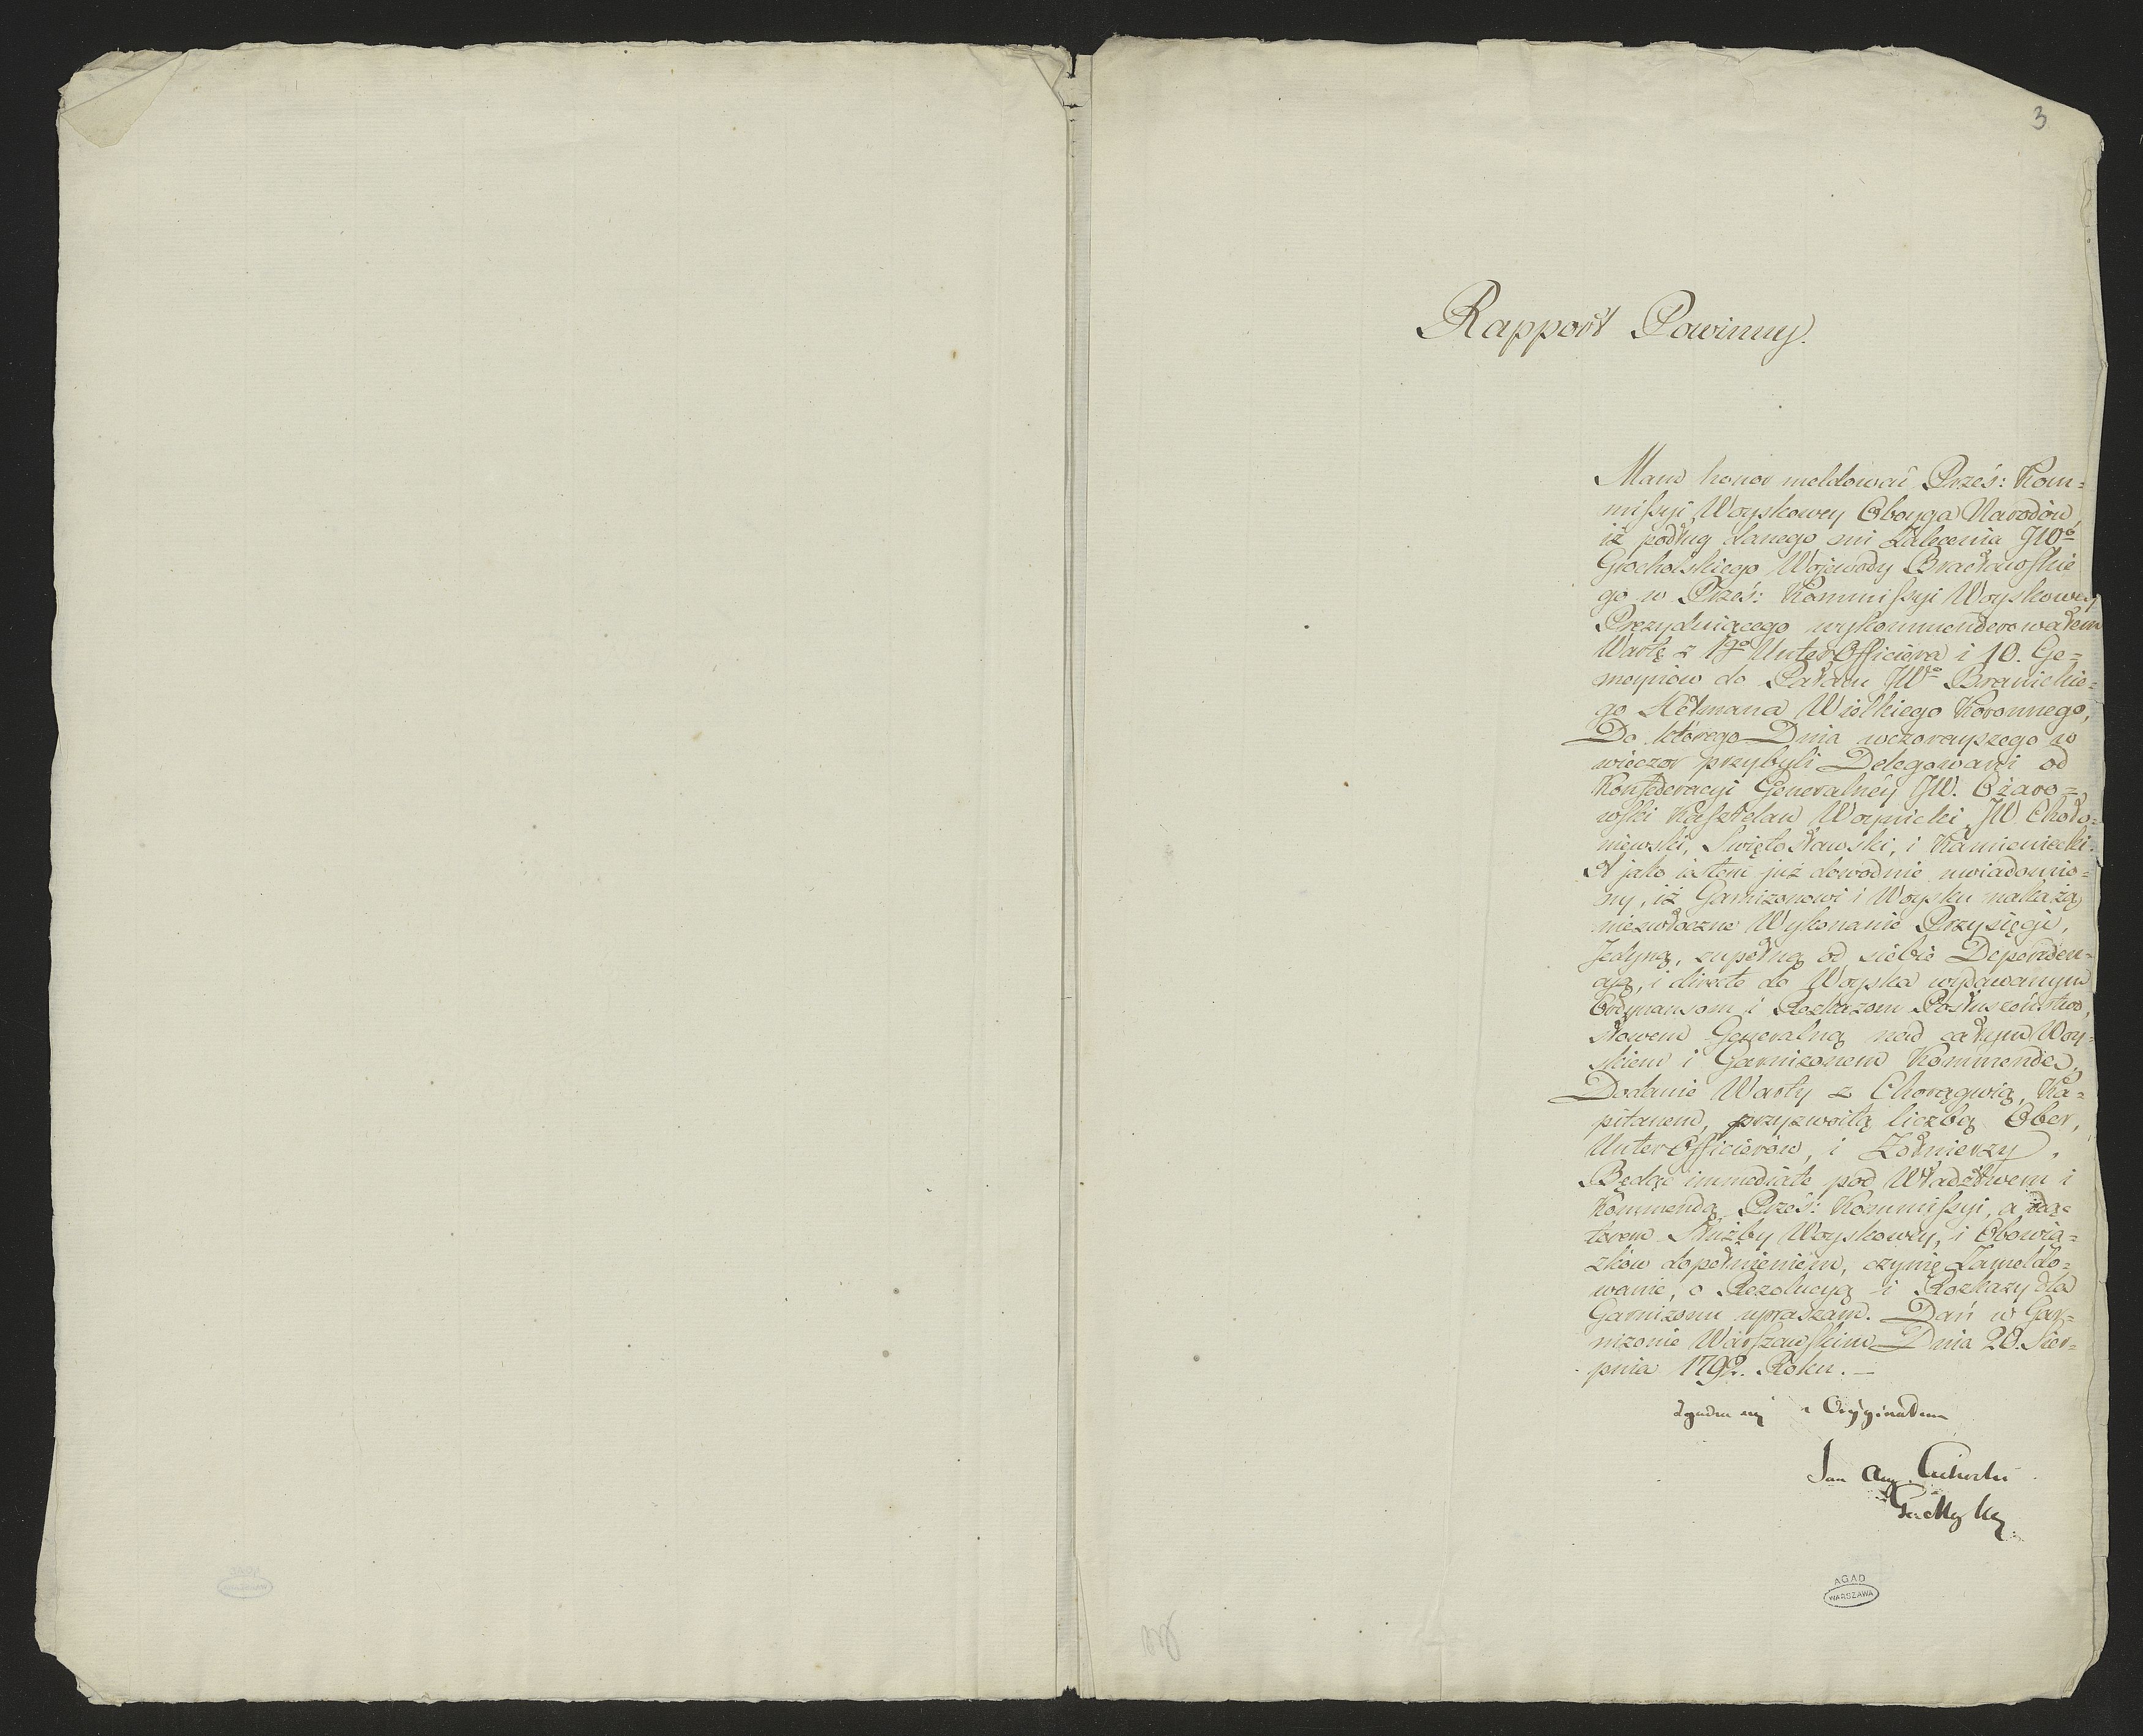 3
Rapport Powinny.
Mam honor meldować Prześ: Kom=
missyi Woyskowey Oboyga Narodów,
iż podług danego mi Zalecenia JWo
Grocholskiego Wojewody Bracławskie
go w Prześ: Kommissyi Woyskowey
Prezyduiącego wykommenderowałem
Wartę z 1go UnterOfficiera i 10. Ge=
meynów do Pałacu JWo Branickie=
go Hetmana Wielkiego Koronnego,
Do którego Dnia wczorayszego w
wieczor przybyli Delegowani od
Konfederacyi Generalney JW. Ożaro=
wski Kasztelan Woynicki, JW. Choło=
niewski, Swiętosławski, i Kamieniecki.
A jako iestem już dowodnie uwiadomio=
ny, iż Garnizonowi i Woysku nakażą
niezwłoczne Wykonanie Przysięgi,
Jedyną, zupełną od siebie Dependen=
cyą, i directe do Woyska wydawanym
Ordynansom i Rozkazom Posłuszeństwo,
słowem Generalną nad całym Woy=
skiem i Garnizonem Kommendę,
Dodanie Warty z Chorągwią, Ka=
pitanem, przyzwoitą liczbą Ober,
UnterOfficierów, i Żołnierzy.
Będąc immediate pod Władztwem i
Kommendą Prześ: Kommissyi, a zą=
tem Służby Woyskowey, i Obowią=
zków dopełnieniem, czynię Zameldo=
wanie, o Rezolucyą i Rozkazy dla
Garnizonu upraszam. Dań w Gar=
nizonie Warszawskim Dnia 20. Sier=
pnia 1792. Roku. —
Zgadza się z Oryginałem
Jan Aug. Cichocki
AGAD
WARSZAWA